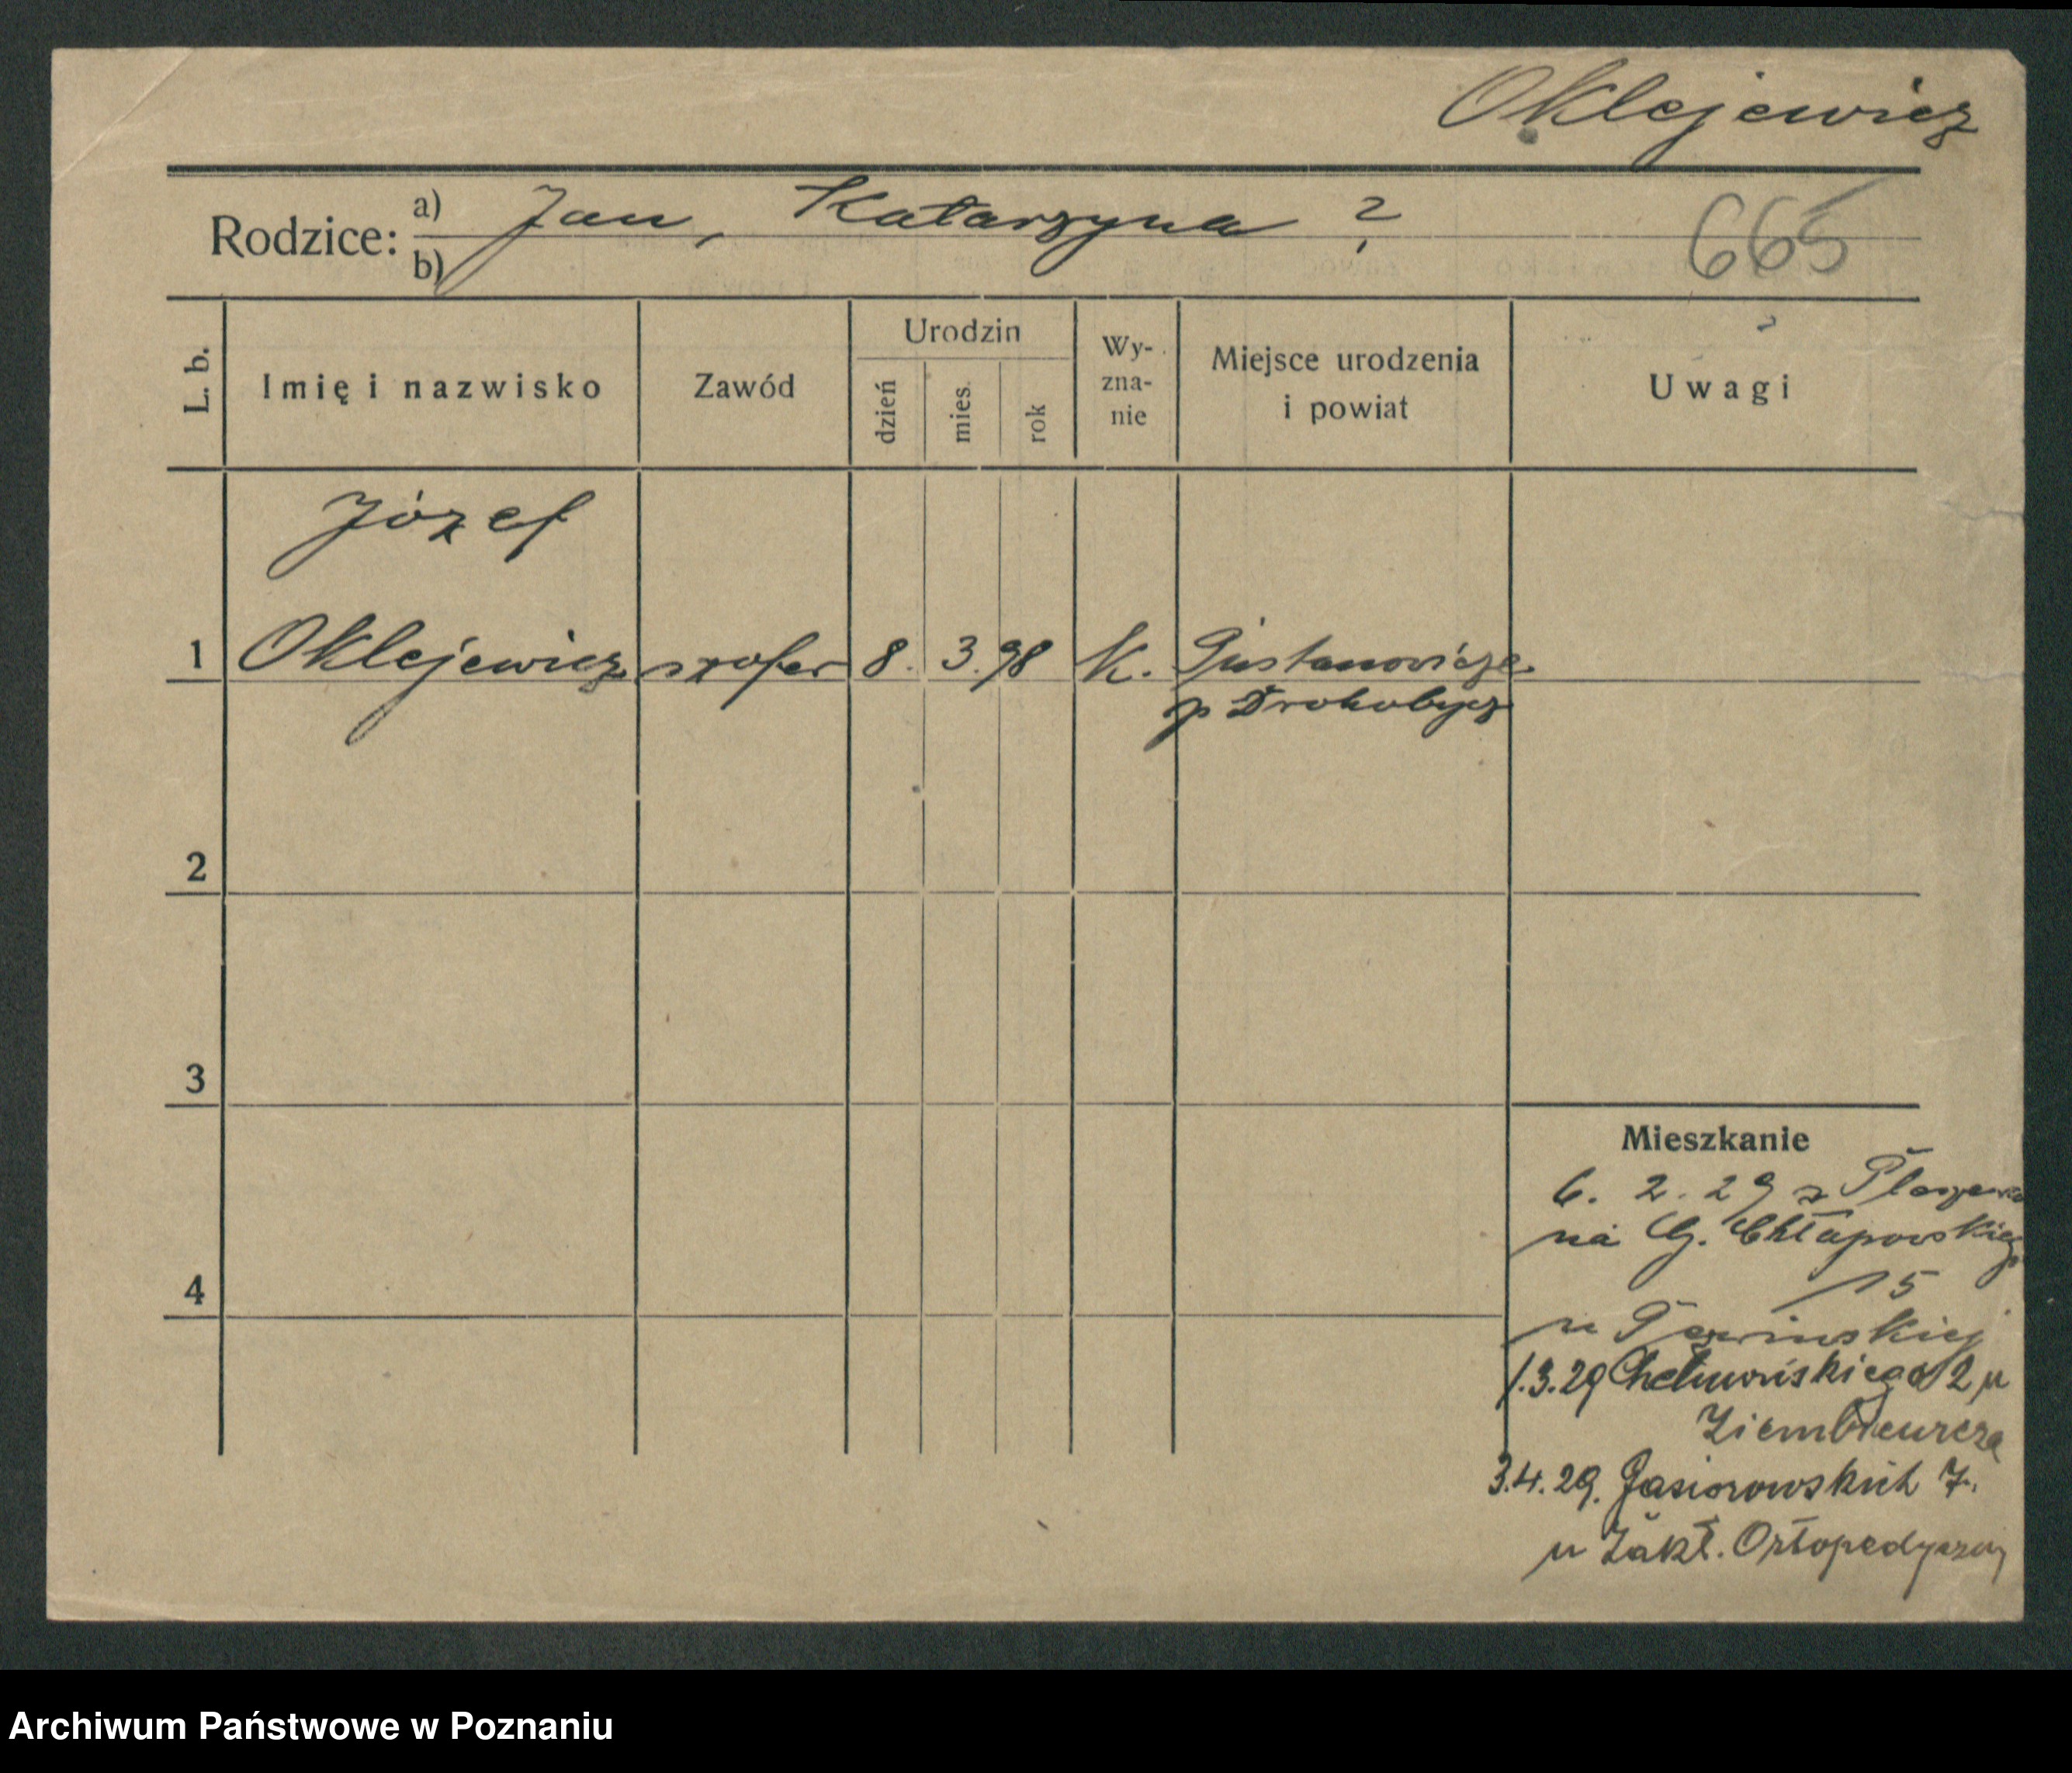 Oklejewicz
Rodzice: a) Jan, Katarzyna ?
b)
665
L. b.
Imię i nazwisko
Zawód
Urodzin
dzień
mies.
rok
Wy-
zna-
nie
Miejsce urodzenia
i powiat
Uwagi
Józef
1 Oklejewicz szofer 8. 3. 98 k. Gustanowicze
p Drohobycz
2
3
4
Mieszkanie
6. 2. 29 z
na G. Chłapowskiego
15
u
1.3.29 Chełmońskiego 2 u
Ziembiewicza
3.4.29. Gąsiorowskich 7.
u Zakł. Ortopedyczny
Archiwum Państwowe w Poznaniu